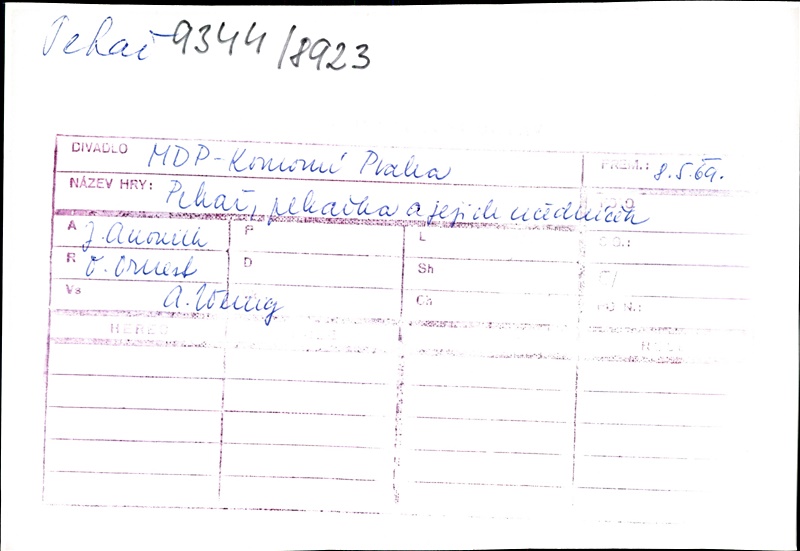 Pekař 9344/8923
DIVADLO MDP-Komorní Praha PREM.: 8.5.69.
NÁZEV HRY: Pekař, pekařka a jejich
A J. Anouilh P L
R O. Ornest D Sh
Vs A. Wenig Ch
HEREC